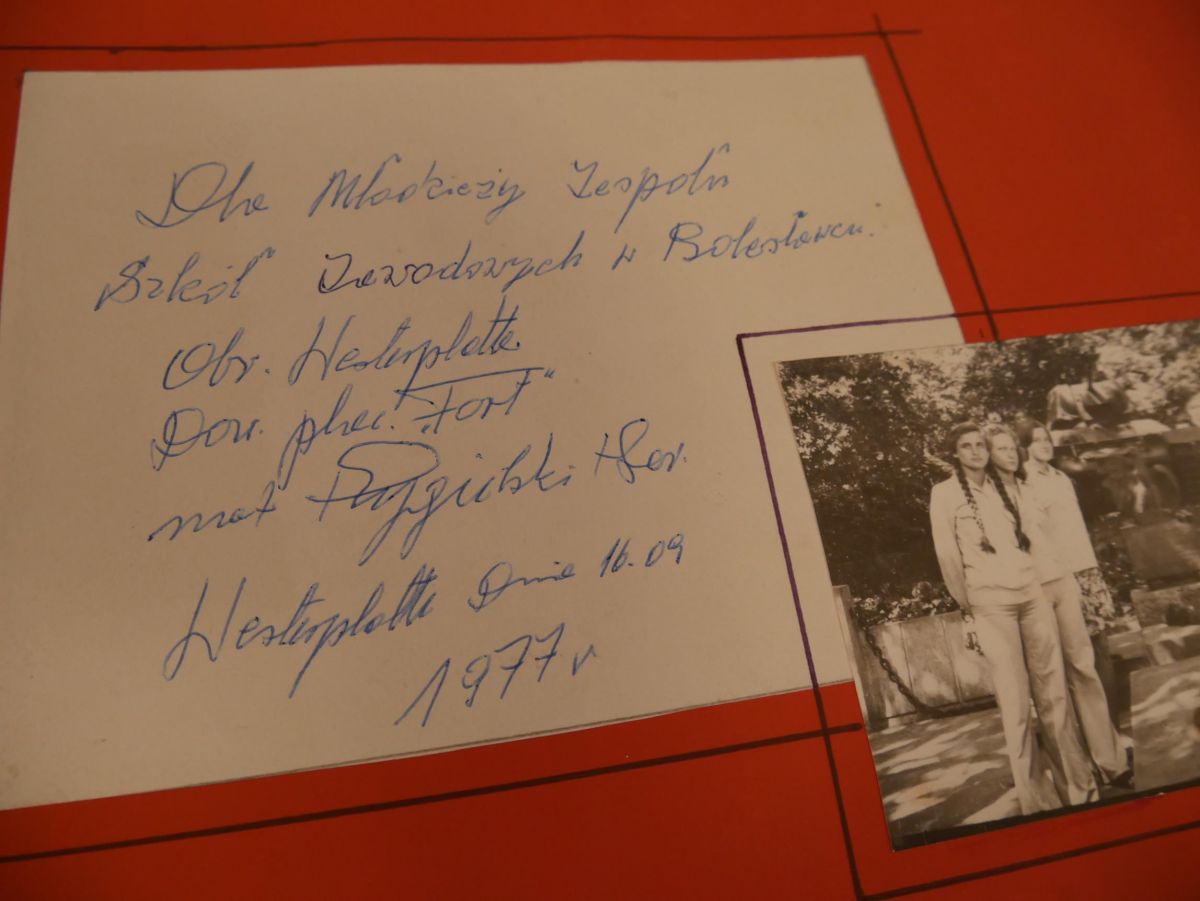 Dla Młodzieży Zespołu
Szkół Zawodowych w Bolesławcu.
Obr. Westerplatte
Dow. plac. „Fort"
mat
Westerplatte Dnia 16.09
1977 r